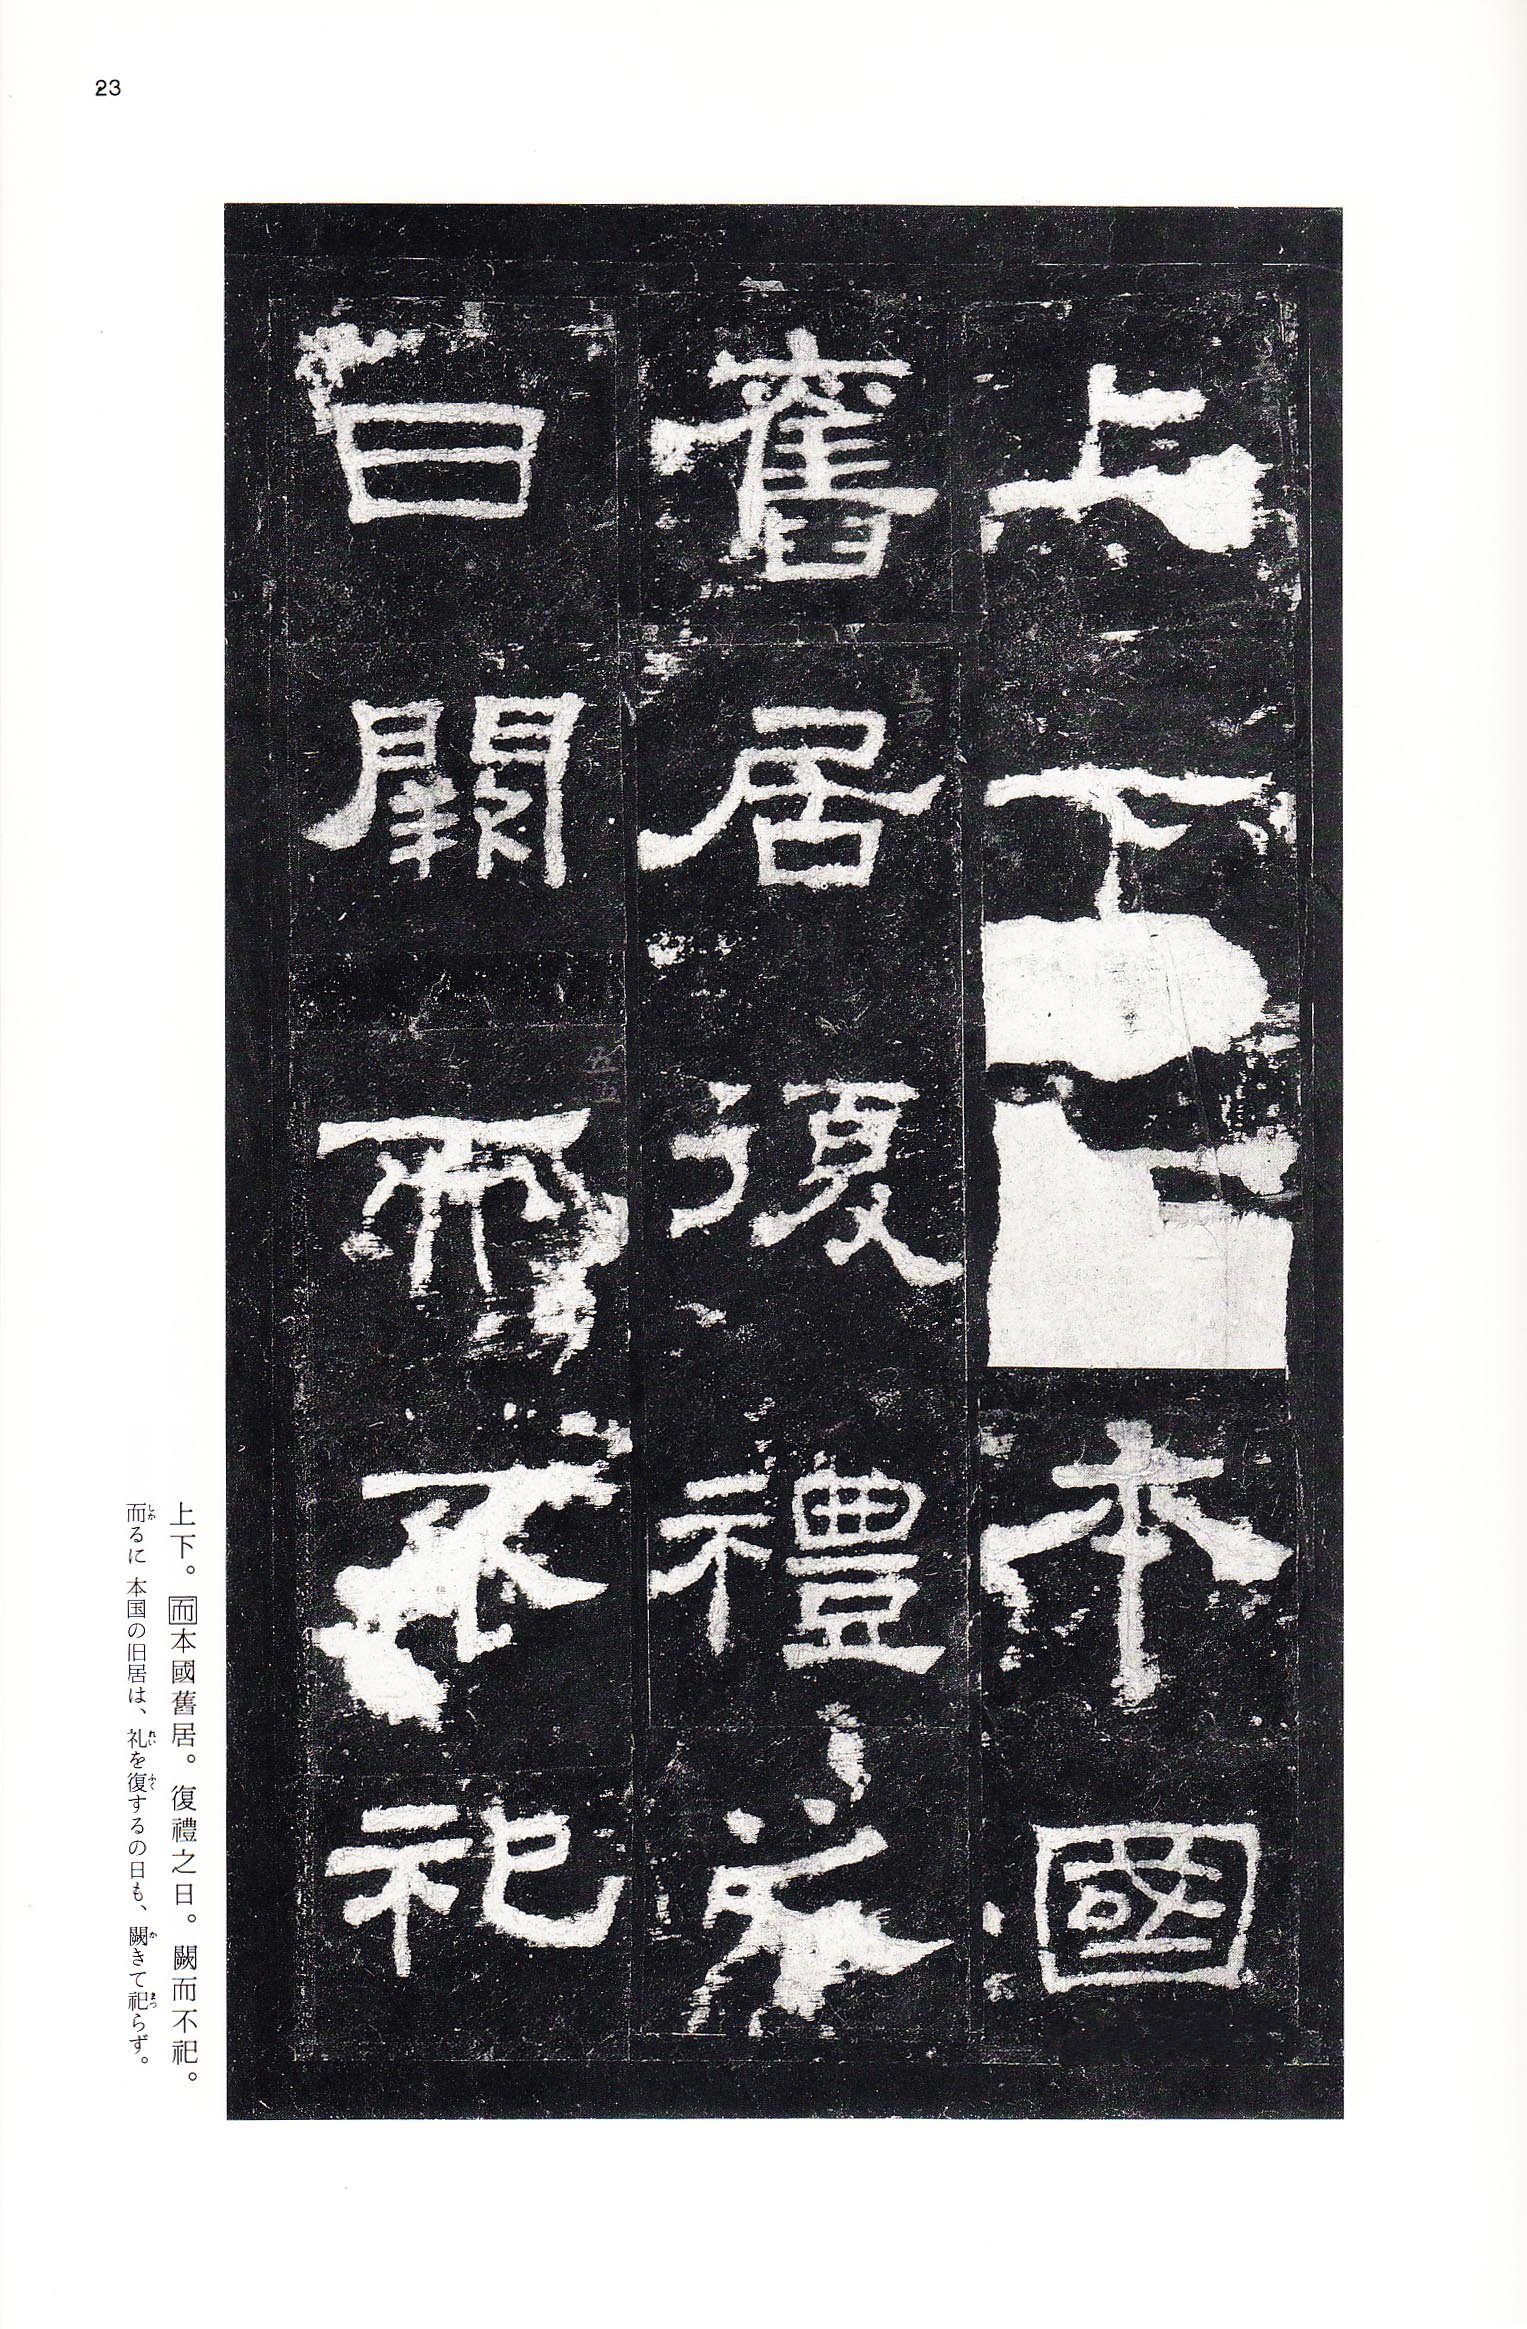 23
上下本國
舊居復禮之
日闕而不祀
上下。而本國舊居。復禮之日。闕而不祀。
而るに本国の旧居は、礼を復するの日も、闕きて祀らず。